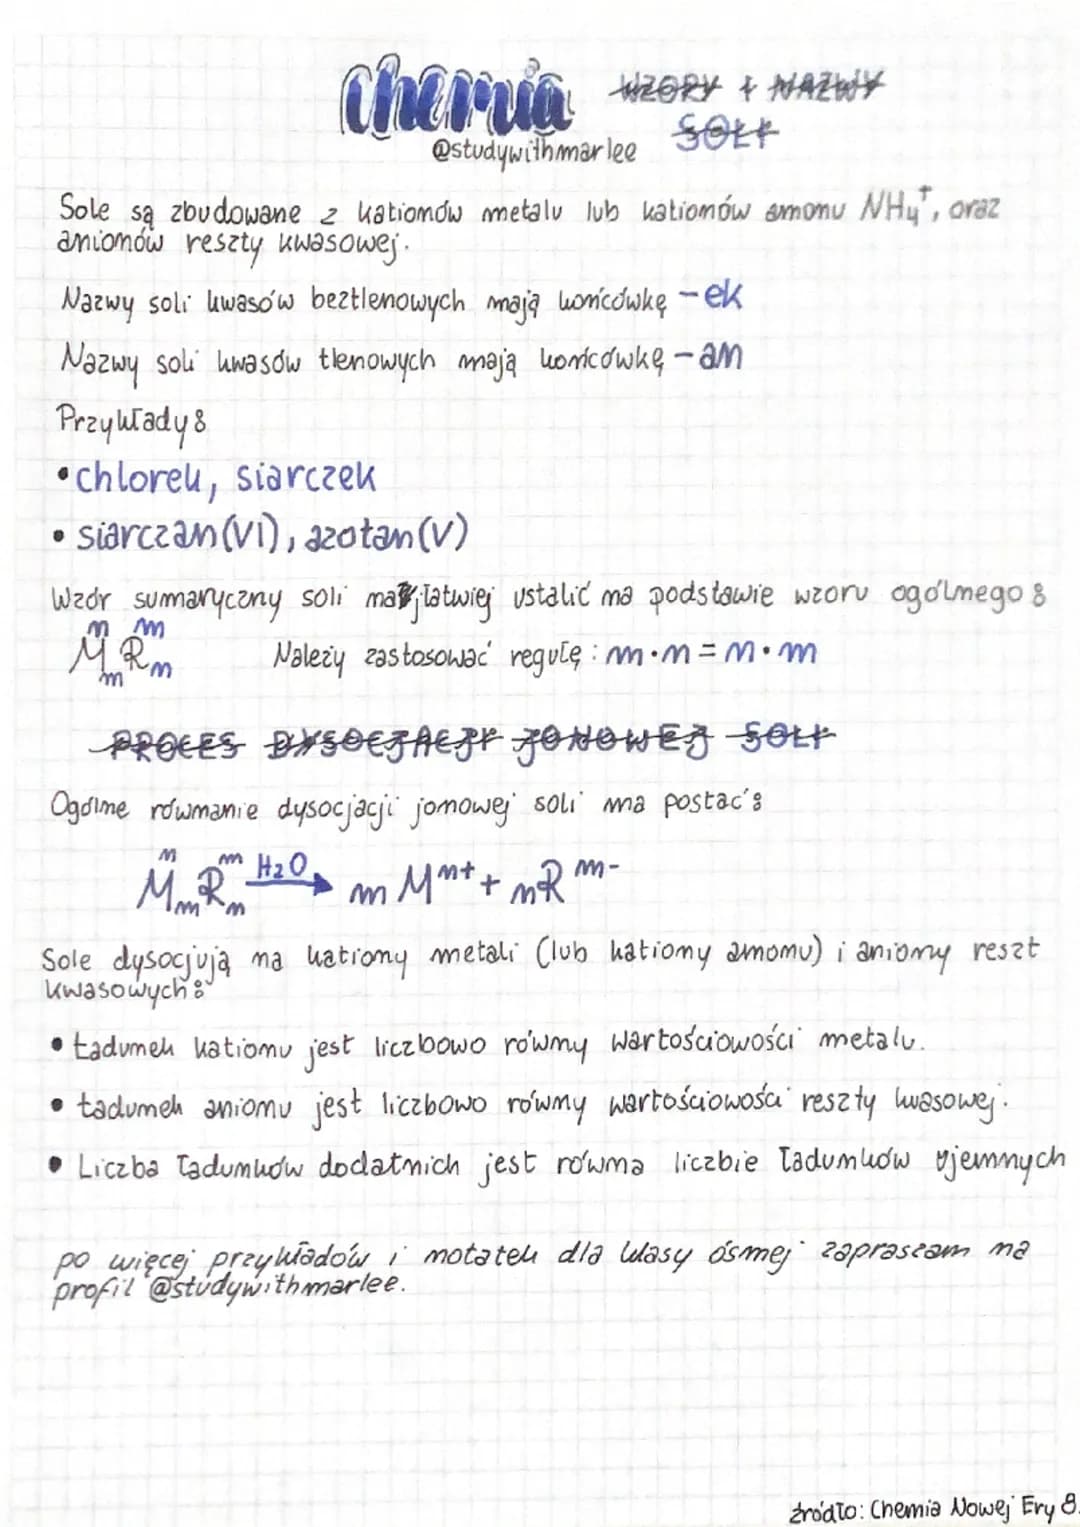 Chemia WZORY I NAZWY
SOLI
@studywithmarlee
Sole są zbudowane z kationów metalu lub kationów amonu NH₄⁺, oraz
anionów reszty kwasowej.
Nazwy soli kwasów beztlenowych mają końcówkę -ek
Nazwy soli kwasów tlenowych mają końcówkę -an
Przykłady:
• chlorek, siarczek
• siarczan(VI), azotan(V)
Wzór sumaryczny soli najłatwiej ustalić na podstawie wzoru ogólnego:
n m
MₘRₙ Należy zastosować regułę: m·n = n·m
PROCES DYSOCJACJI JONOWEJ SOLI
Ogólne równanie dysocjacji jonowej soli ma postać:
n m H₂O
MₘRₙ → m Mⁿ⁺ + nRᵐ⁻
Sole dysocjują na kationy metali (lub kationy amonu) i aniony reszt
kwasowych:
• ładunek kationu jest liczbowo równy wartościowości metalu.
• ładunek anionu jest liczbowo równy wartościowości reszty kwasowej.
• Liczba ładunków dodatnich jest równa liczbie ładunków ujemnych
po więcej przykładów i notatek dla klasy ósmej zapraszam na
profil @studywithmarlee.
źródło: Chemia Nowej Ery 8.